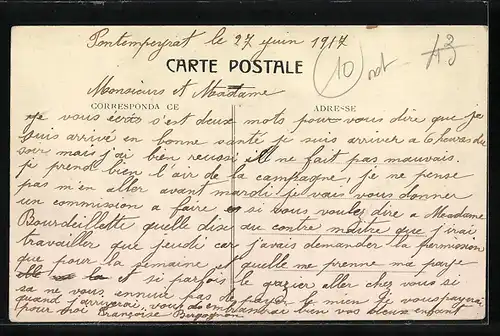 Pontempeyrat le 27 juin 1917
10 not 43
CARTE POSTALE
Monsieur et Madame
CORRESPONDA CE
ADRESSE
je vous écris s'est deux mots pour vous dire que je
suis arrivé en bonne santé je suis arriver a 6 heures du
soir mais j'ai bien reussi il ne fait pas mauvais.
je prend bien l'air de la campagne, je ne pense
pas m'en aller avant mardi je vais vous donner
un commission a faire si vous voulez dire a Madame
Bourdeillette quelle dise au contre maitre que j'irai
travailler que jeudi car j'avais demander la permission
que pour la semaine et quelle me prenne ma paye
et si parfois le gazier aller chez vous si
sa ne vous ennuie pas de payer le mien je vous payerai
quand j'arriverai, vous embrasserai bien vos deux enfant
pour moi Françoise